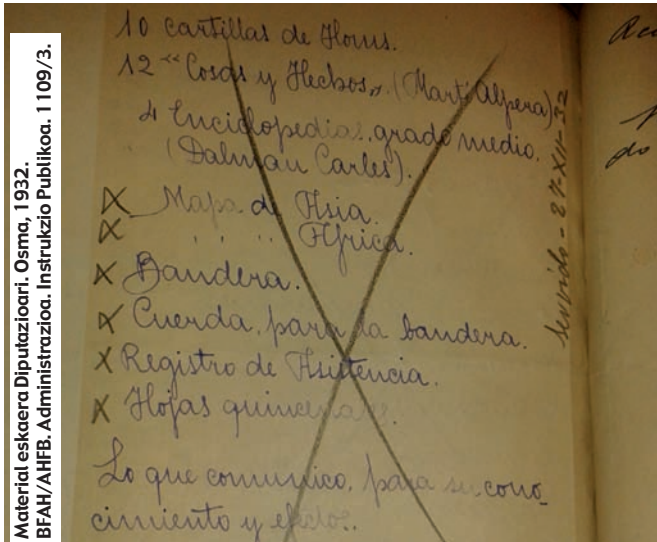 Material eskaera Diputazioari. Osma, 1932.
BFAH/AHFB. Administrazioa. Instrukzio Publikoa. 1109/3.
10 cartillas de
12 “Cosas y Hechos„ (Martí Alpera)
4 Enciclopedias, grado medio.
(Dalmau Carles).
Mapa de Asia.
" " " Africa.
Bandera.
Cuerda, para la bandera.
Registro de Asistencia.
Hojas quincenales.
Lo que comunico, para su cono
cimiento y efectos.
servido - 27-XII-32
do